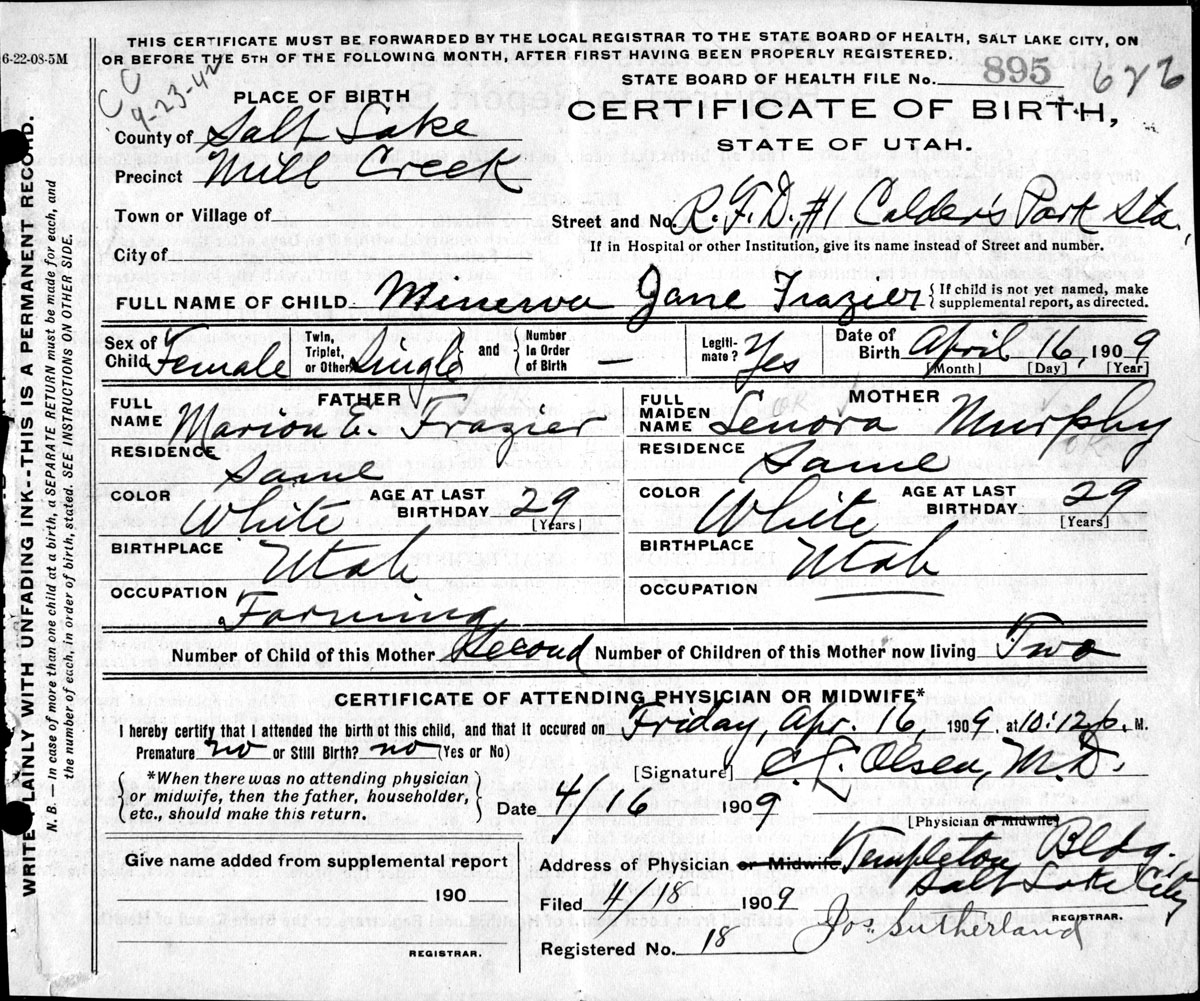 THIS CERTIFICATE MUST BE FORWARDED BY THE LOCAL REGISTRAR TO THE STATE BOARD OF HEALTH, SALT LAKE CITY, ON
OR BEFORE THE 5TH OF THE FOLLOWING MONTH, AFTER FIRST HAVING BEEN PROPERLY REGISTERED.
6-22-08-5M
STATE BOARD OF HEALTH FILE No. 895
CC
9-23-42
PLACE OF BIRTH
CERTIFICATE OF BIRTH,
STATE OF UTAH.
County of Salt Lake
Precinct Mill Creek
Town or Village of
Street and No. R.F.D. #1 Calder's Park Sta.,
If in Hospital or other Institution, give its name instead of Street and number.
City of
FULL NAME OF CHILD Minerva Jane Frazier { If child is not yet named, make supplemental report, as directed.
Sex of Child Female Twin, Triplet, or Other Single and Number In Order of Birth — Legiti-mate? Yes Date of Birth April 16, 1909
[Month] [Day] [Year]
FATHER
FULL NAME Marion E. Frazier
RESIDENCE Same
COLOR White AGE AT LAST BIRTHDAY 29 [Years]
BIRTHPLACE Utah
OCCUPATION Farming
MOTHER
OK
FULL MAIDEN NAME Lenora Murphy
OK
RESIDENCE Same
COLOR White AGE AT LAST BIRTHDAY 29 [Years]
BIRTHPLACE Utah
OCCUPATION
Number of Child of this Mother Second Number of Children of this Mother now living Two
CERTIFICATE OF ATTENDING PHYSICIAN OR MIDWIFE*
I hereby certify that I attended the birth of this child, and that it occured on Friday, Apr. 16, 1909. at 10:12 M.
Premature no or Still Birth? no (Yes or No)
[Signature] C. L. Olsen, M.D.
[Physician or Midwife]
*When there was no attending physician
or midwife, then the father, householder,
etc., should make this return.
Date 4/16 1909
Give name added from supplemental report
190
REGISTRAR.
Address of Physician or Midwife Templeton Bldg.
Salt Lake City
Filed 4/18 1909
REGISTRAR.
Jos. Sutherland
Registered No. 18
WRITE PLAINLY WITH UNFADING INK--THIS IS A PERMANENT RECORD.
N. B. — In case of more than one child at a birth, a SEPARATE RETURN must be made for each, and
the number of each, in order of birth, stated. SEE INSTRUCTIONS ON OTHER SIDE.